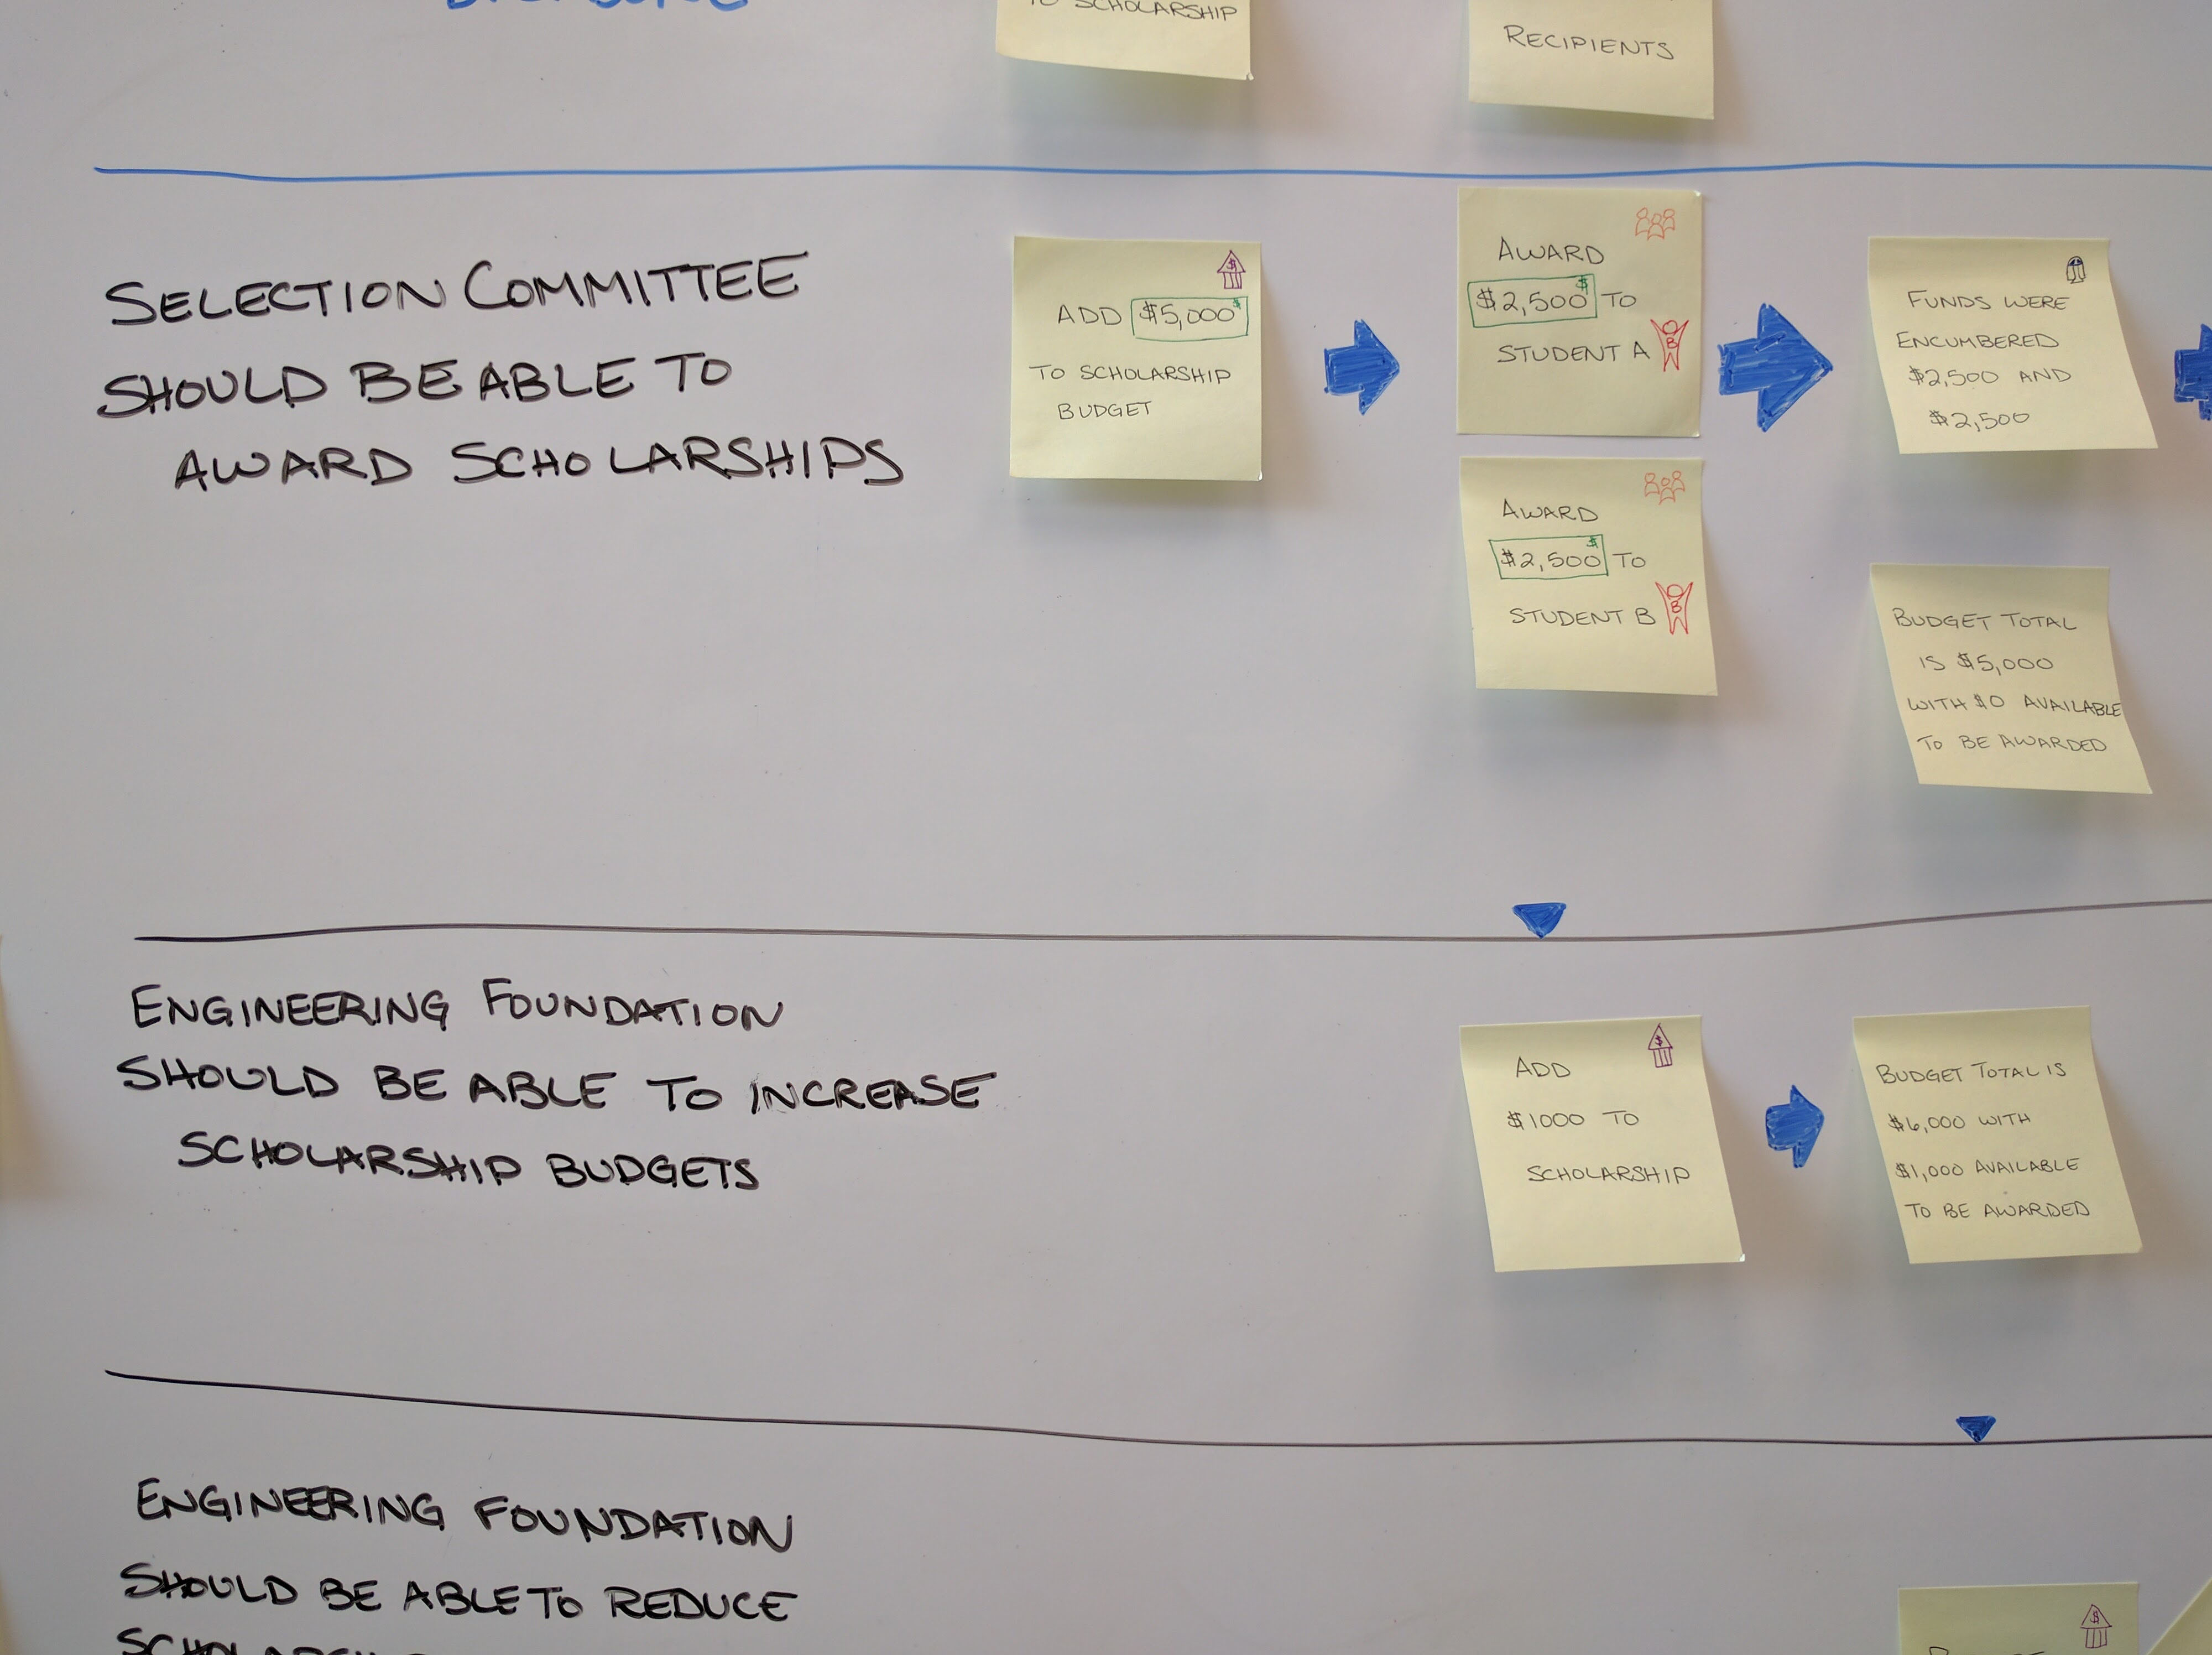 TO SCHOLARSHIP
RECIPIENTS
SELECTION COMMITTEE
SHOULD BE ABLE TO
AWARD SCHOLARSHIPS
$
ADD $5,000 $
TO SCHOLARSHIP
BUDGET
AWARD
$2,500 $ TO
STUDENT A B
AWARD
$2,500 $ TO
STUDENT B B
FUNDS WERE
ENCUMBERED
$2,500 AND
$2,500
BUDGET TOTAL
IS $5,000
WITH $0 AVAILABLE
TO BE AWARDED
ENGINEERING FOUNDATION
SHOULD BE ABLE TO INCREASE
SCHOLARSHIP BUDGETS
$
ADD
$1000 TO
SCHOLARSHIP
BUDGET TOTAL IS
$6,000 WITH
$1,000 AVAILABLE
TO BE AWARDED
ENGINEERING FOUNDATION
SHOULD BE ABLE TO REDUCE
$